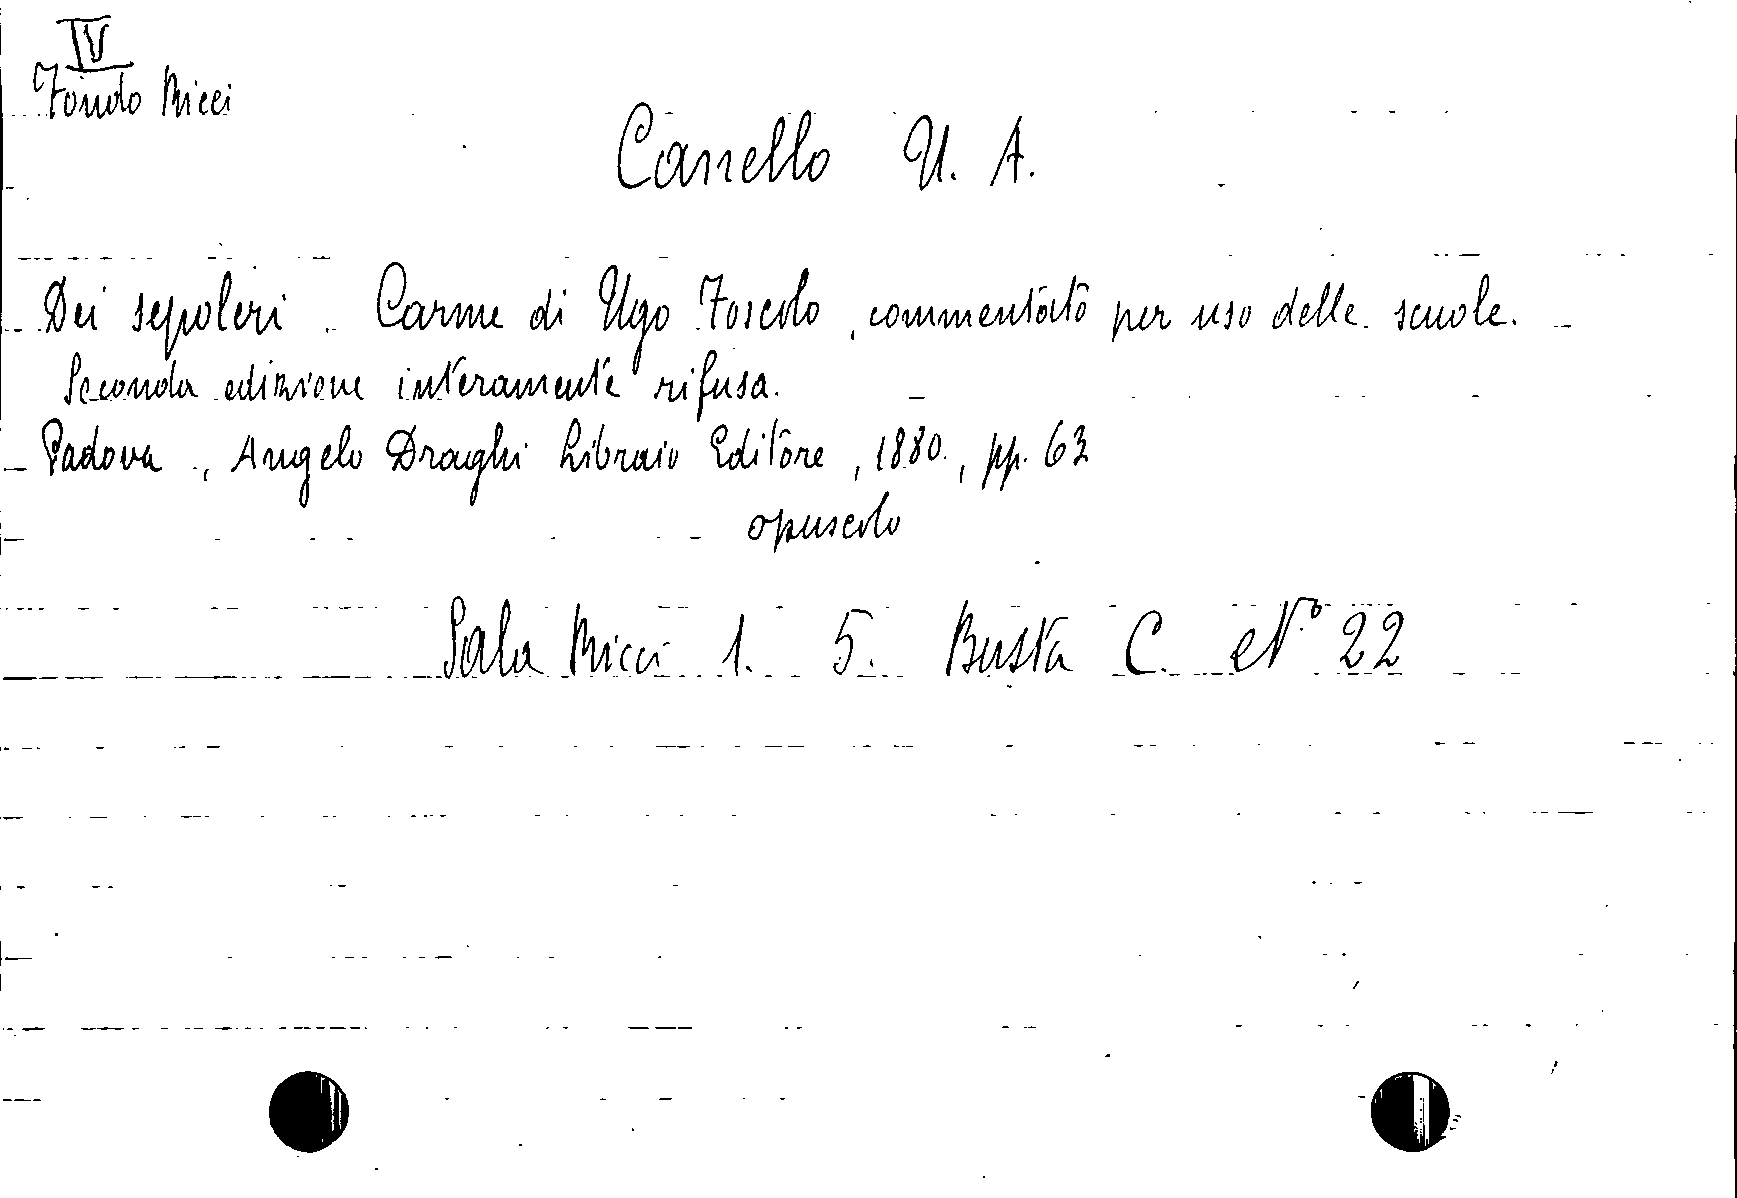 IV
Fondo Ricci
Canello U. A.
Dei sepolcri. Carme di Ugo Foscolo, commentato per uso delle scuole.
Seconda edizione interamente rifusa.
Padova, Angelo Draghi Libraio Editore, 1880, pp. 63
opuscolo
Sala Ricci 1. 5. Busta C. N° 22